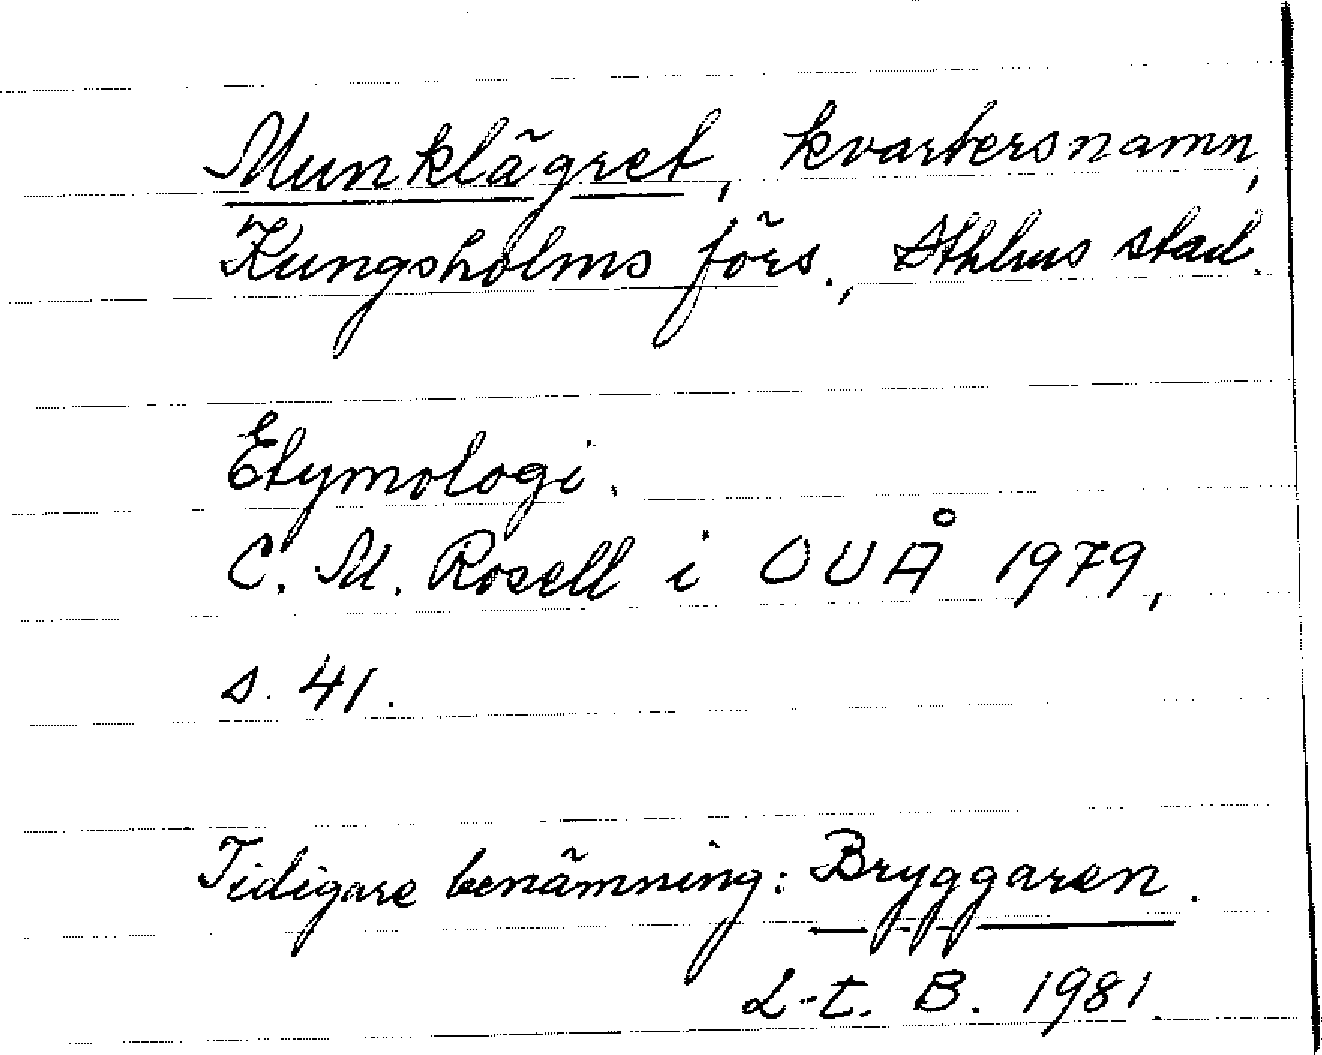 Munklägret, kvartersnamn,
Kungsholms förs., Sthlms stad.
Etymologi.
C. M. Rosell i OUÅ 1979,
s. 41.
Tidigare benämning: Bryggaren.
L-t. B. 1981.